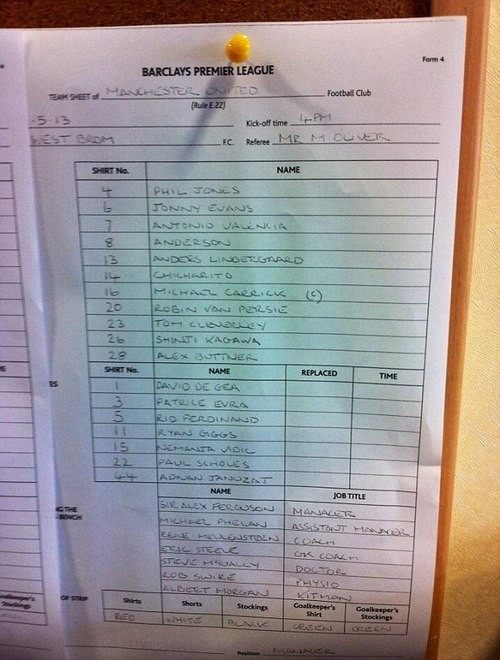 Form 4
BARCLAYS PREMIER LEAGUE
TEAM SHEET of MANCHESTER UNITED Football Club
(Rule E.22)
-5-13 Kick-off time 4PM
WEST BROM F.C. Referee MR M OLIVER
SHIRT No. NAME
4 PHIL JONES
6 JONNY EVANS
7 ANTONIO VALENCIA
8 ANDERSON
13 ANDERS LINDERGAARD
14 CHICHARITO
16 MICHAEL CARRICK (C)
20 ROBIN VAN PERSIE
23 TOM CLEVERLEY
26 SHINJI KAGAWA
28 ALEX BUTTNER
SHIRT No. NAME REPLACED TIME
1 DAVID DE GEA
3 PATRICE EVRA
5 RIO FERDINAND
11 RYAN GIGGS
15 NEMANJA VIDIC
22 PAUL SCHOLES
44 ADNAN JANUZAJ
NAME JOB TITLE
SIR ALEX FERGUSON MANAGER
MICHAEL PHELAN ASSISTANT MANAGER
RENE MEULENSTEEN COACH
ERIC STEELE GK COACH
STEVE MCNALLY DOCTOR
ROB SWIRE PHYSIO
ALBERT MORGAN KITMAN
NG THE
BENCH
OF STRIP
Shirts Shorts Stockings Goalkeeper's Shirt Goalkeeper's Stockings
RED WHITE BLACK GREEN GREEN
Position MANAGER